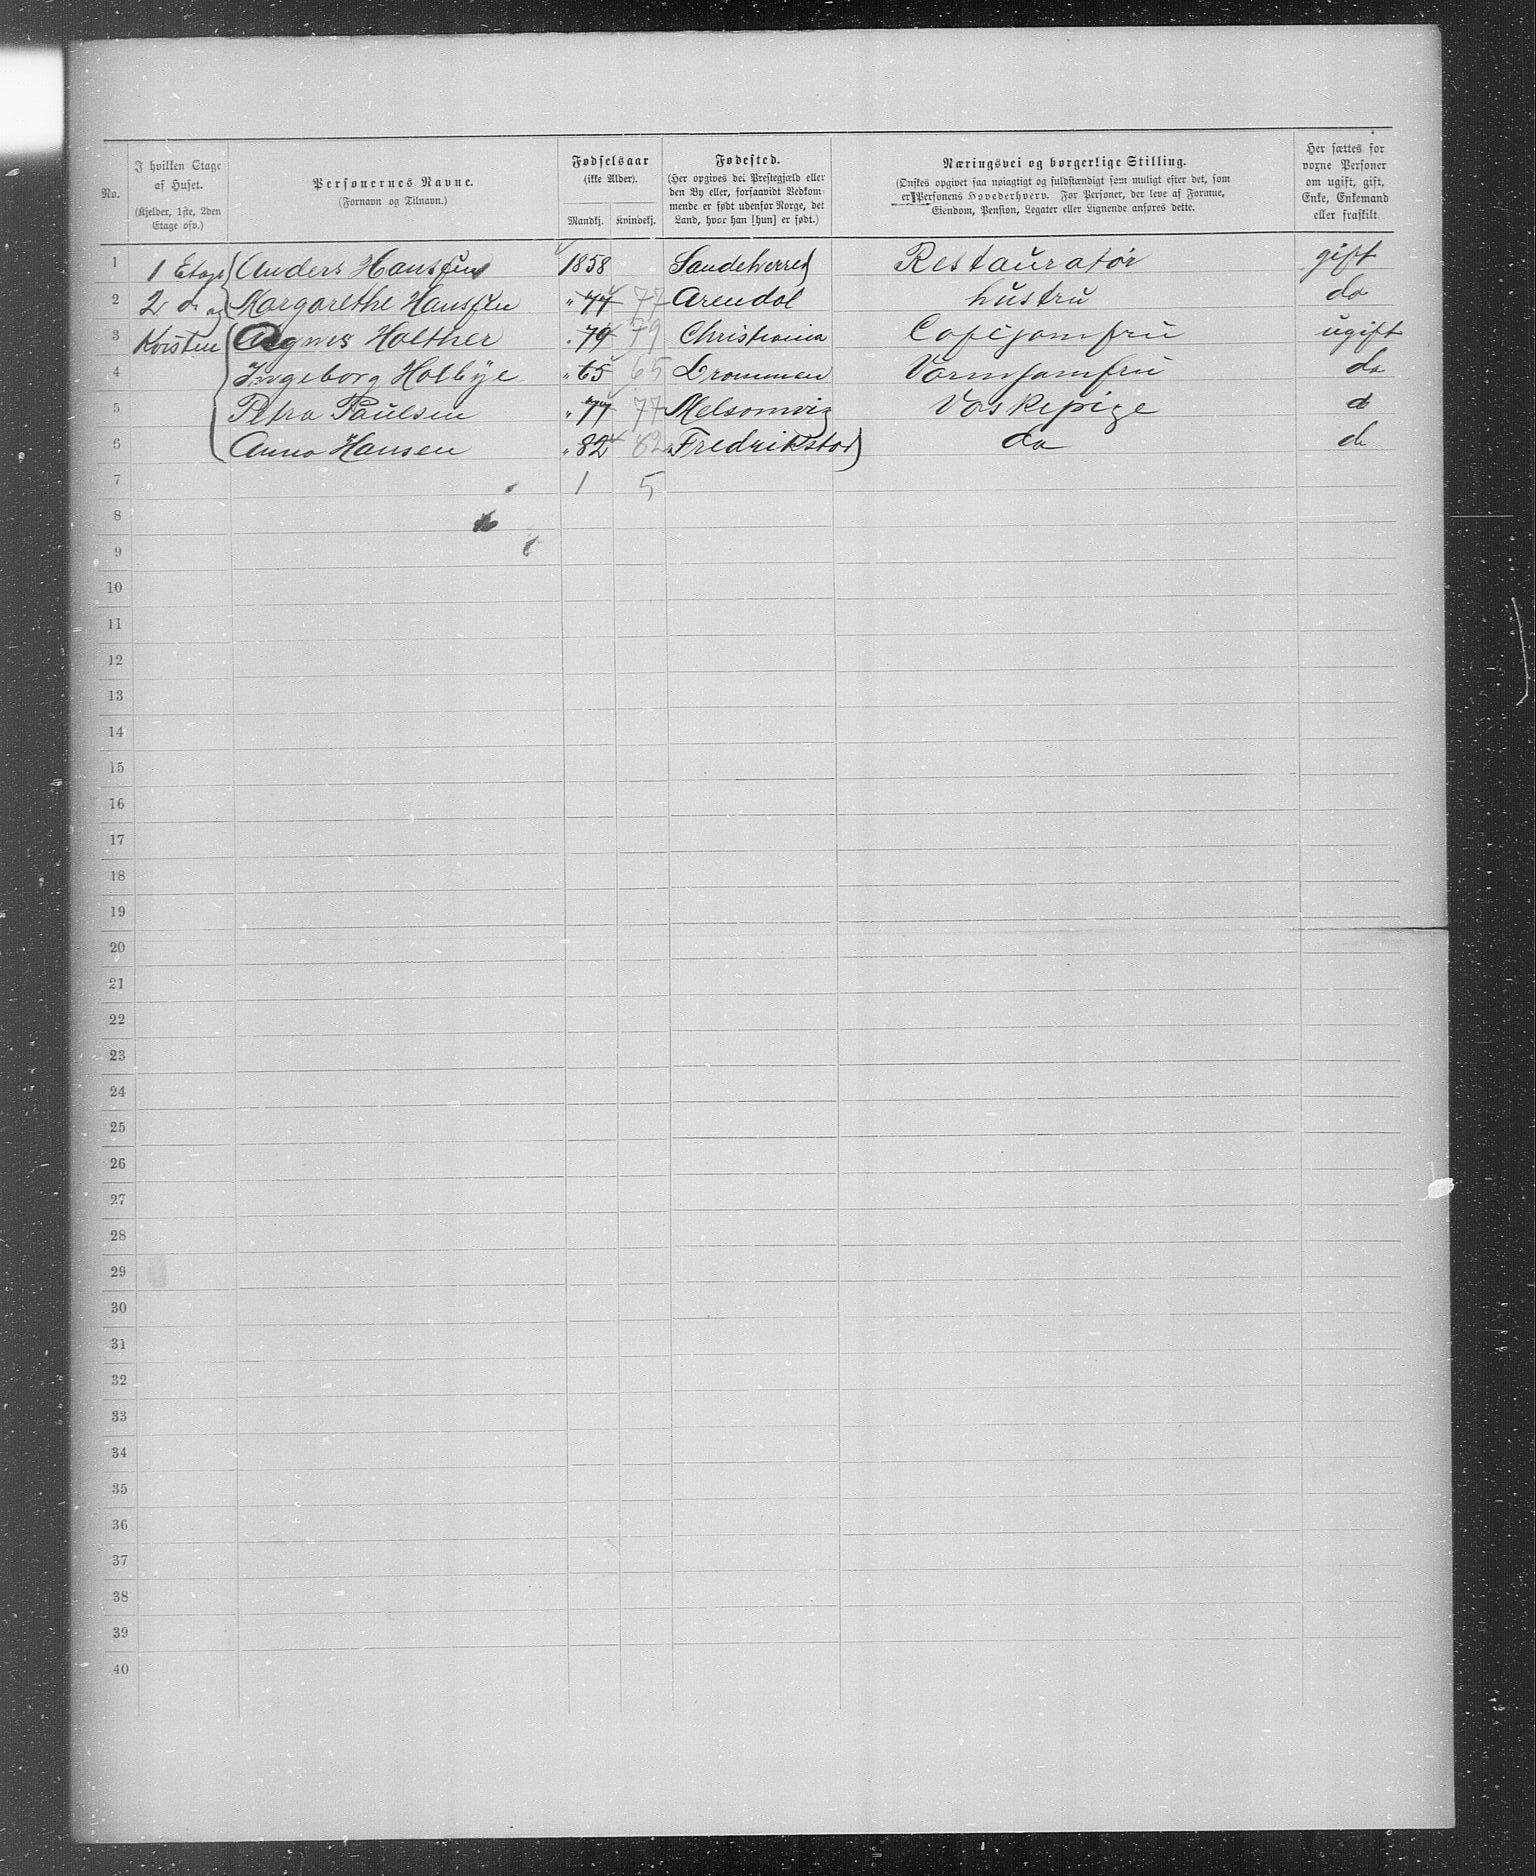 No.
I hvilken Etage af Huset.
(Kjelder, 1ste, 2den Etage osv.)
Personernes Navne.
(Fornavn og Tilnavn.)
Fødselsaar
(ikke Alder).
Mandkj. Kvindekj.
Fødested.
(Her opgives det Prestegjæld eller den By eller, forsaavidt Vedkommende er født udenfor Norge, det Land, hvor han [hun] er født.)
Næringsvei og borgerlige Stilling.
(Ønskes opgivet saa nøiagtigt og fuldstændigt som muligt efter det, som er Personens Hovederhverv. For Personer, der leve af Formue, Eiendom, Pension, Legater eller Lignende anføres dette.
Her sættes for voxne Personer om ugift, gift, Enke, Enkemand eller fraskilt
1 1 Etage Anders Hanssen 1858 Sandeherred Restauratør gift
2 2 do og Margarethe Hanssen " 77 77 Arendal hustru do
3 Kvisten Agnes Holther " 79 79 Christiania Cafejomfru ugift
4 Ingeborg Holbye " 65 65 Drammen Varmjomfru do
5 Petra Paulsen " 77 77 Melsomvig Vaskepige d
6 Anna Hansen " 82 82 Fredrikstad do do
7 1 5
8
9
10
11
12
13
14
15
16
17
18
19
20
21
22
23
24
25
26
27
28
29
30
31
32
33
34
35
36
37
38
39
40